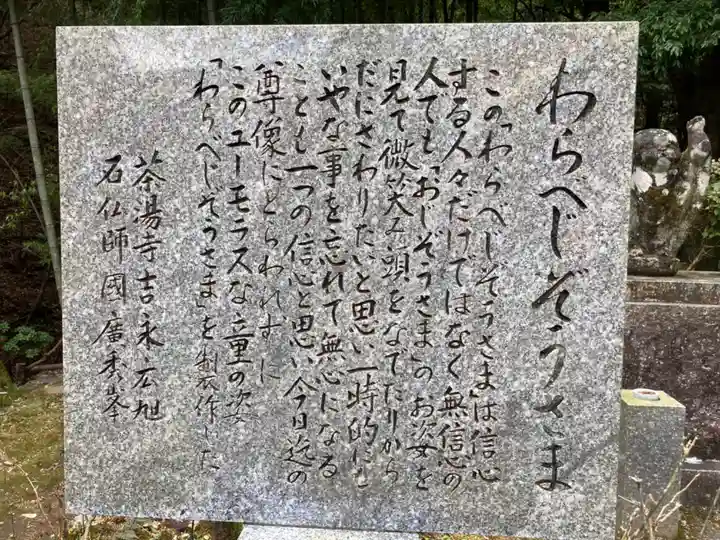 わらべじぞうさま
この「わらべじぞうさま」は信心
する人々だけではなく無信心の
人でも「おじぞうさま」のお姿を
見て微笑み頭をなでたりから
だにさわりたいと思い一時的にも
いやな事を忘れて無心になる
ことも一つの信心と思い今日迄の
尊像にとらわれずに
このユーモラスな童の姿
「わらべじぞうさま」を製作した
茶湯寺 吉永石旭
石仏師 國廣秀峯